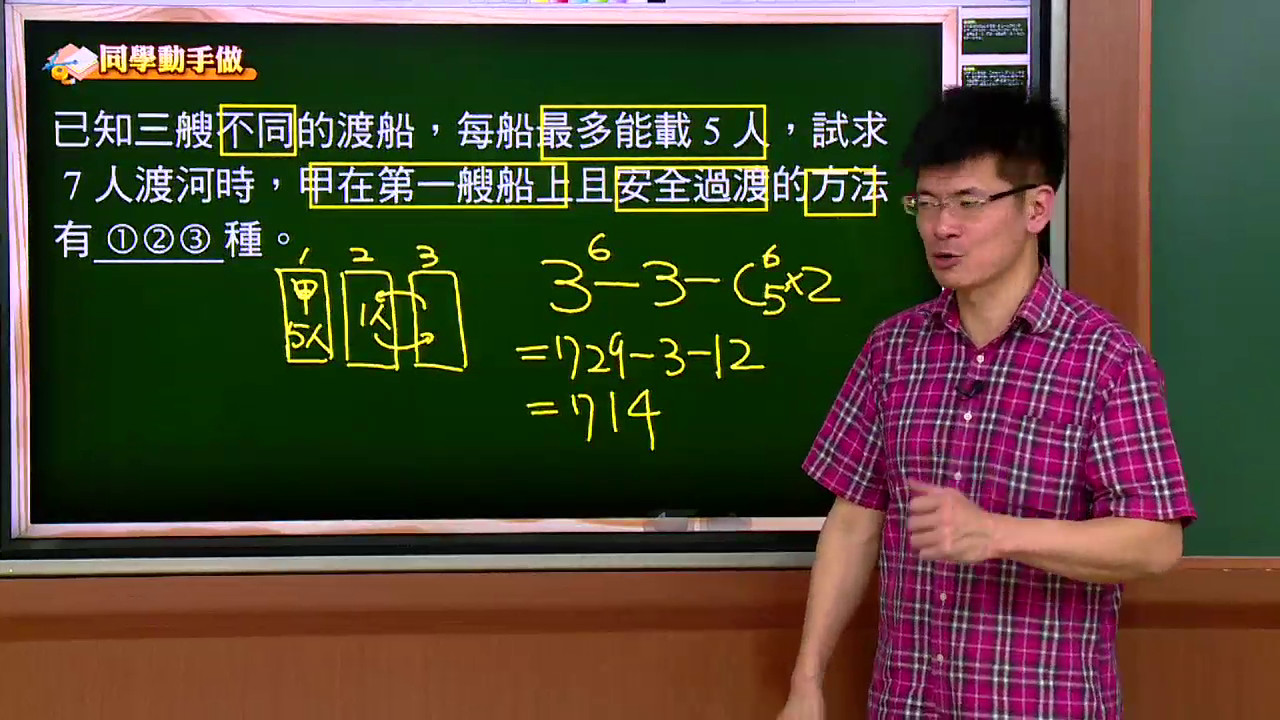 同學動手做
已知三艘不同的渡船，每船最多能載5人，試求
7人渡河時，甲在第一艘船上且安全過渡的方法
有①②③種。
1 2 3
甲
5人 1人
3⁶-3-C⁶₅×2
=729-3-12
=714